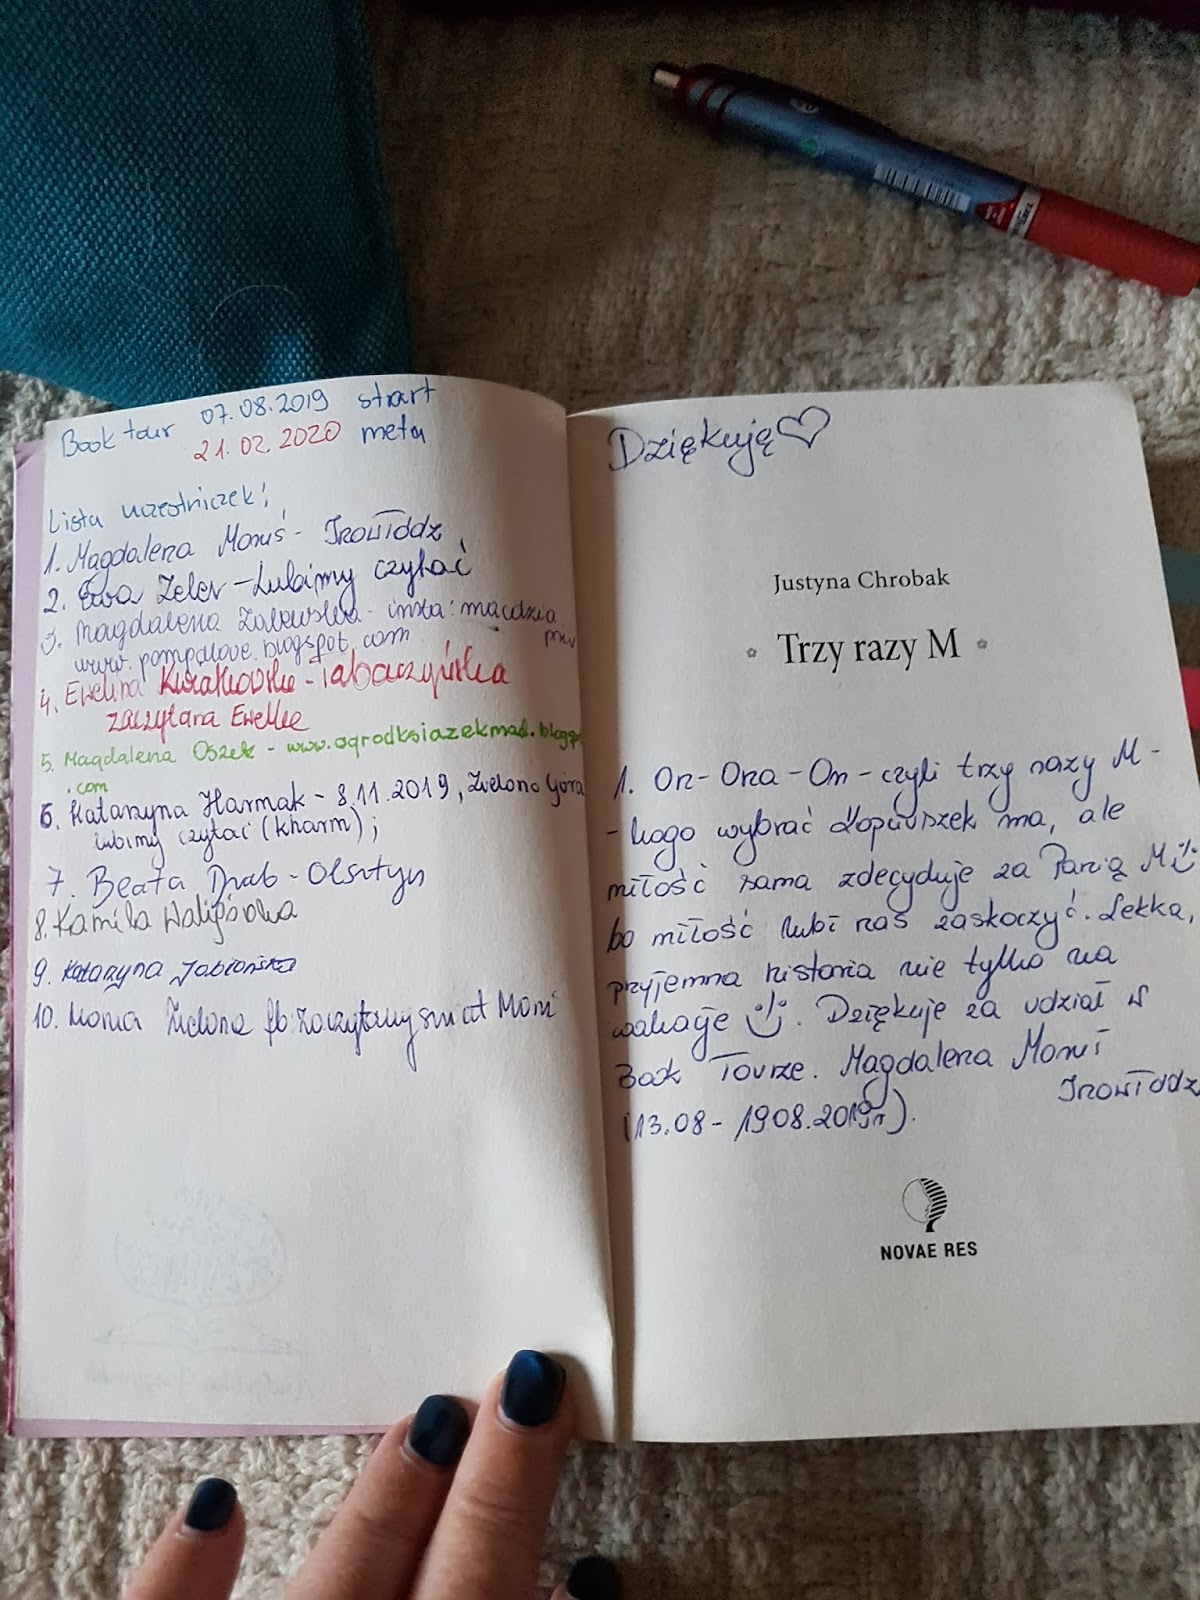 Book tour 07.08.2019 start
21.02.2020 meta
Lista uczestniczek:
1. Magdalena Moruś - Inowłódz
2. Ewa Zeler - Lubimy czytać
3. Magdalena Zalewska - insta: macdzia
www.pompolove.blogspot.com
4. Ewelina Kwiatkowska - Tabaczyńska
zaczytana Ewelka
5. Magdalena Oszek - www.ogrodksiazekmad.blogsp
.com
6. Katarzyna Harmak - 8.11.2019, Zielona Góra
lubimy czytać (kharm);
7. Beata Drab - Olsztyn
8. Kamila Waligórska
9. Katarzyna Jabłońska
10. Monia Zielona fb: zaczytanyswiat Moni
Dziękuję
Justyna Chrobak
Trzy razy M
1. On - Ona - On - czyli trzy razy M -
- kogo wybrać Łopuszek ma, ale
miłość sama zdecyduje za Panią M
bo miłość lubi nas zaskoczyć. Lekka,
przyjemna historia nie tylko na
wakacje. Dziękuje za udział w
Book Tourze. Magdalena Moruś
Inowłódz
(13.08 - 19.08.2019r).
NOVAE RES